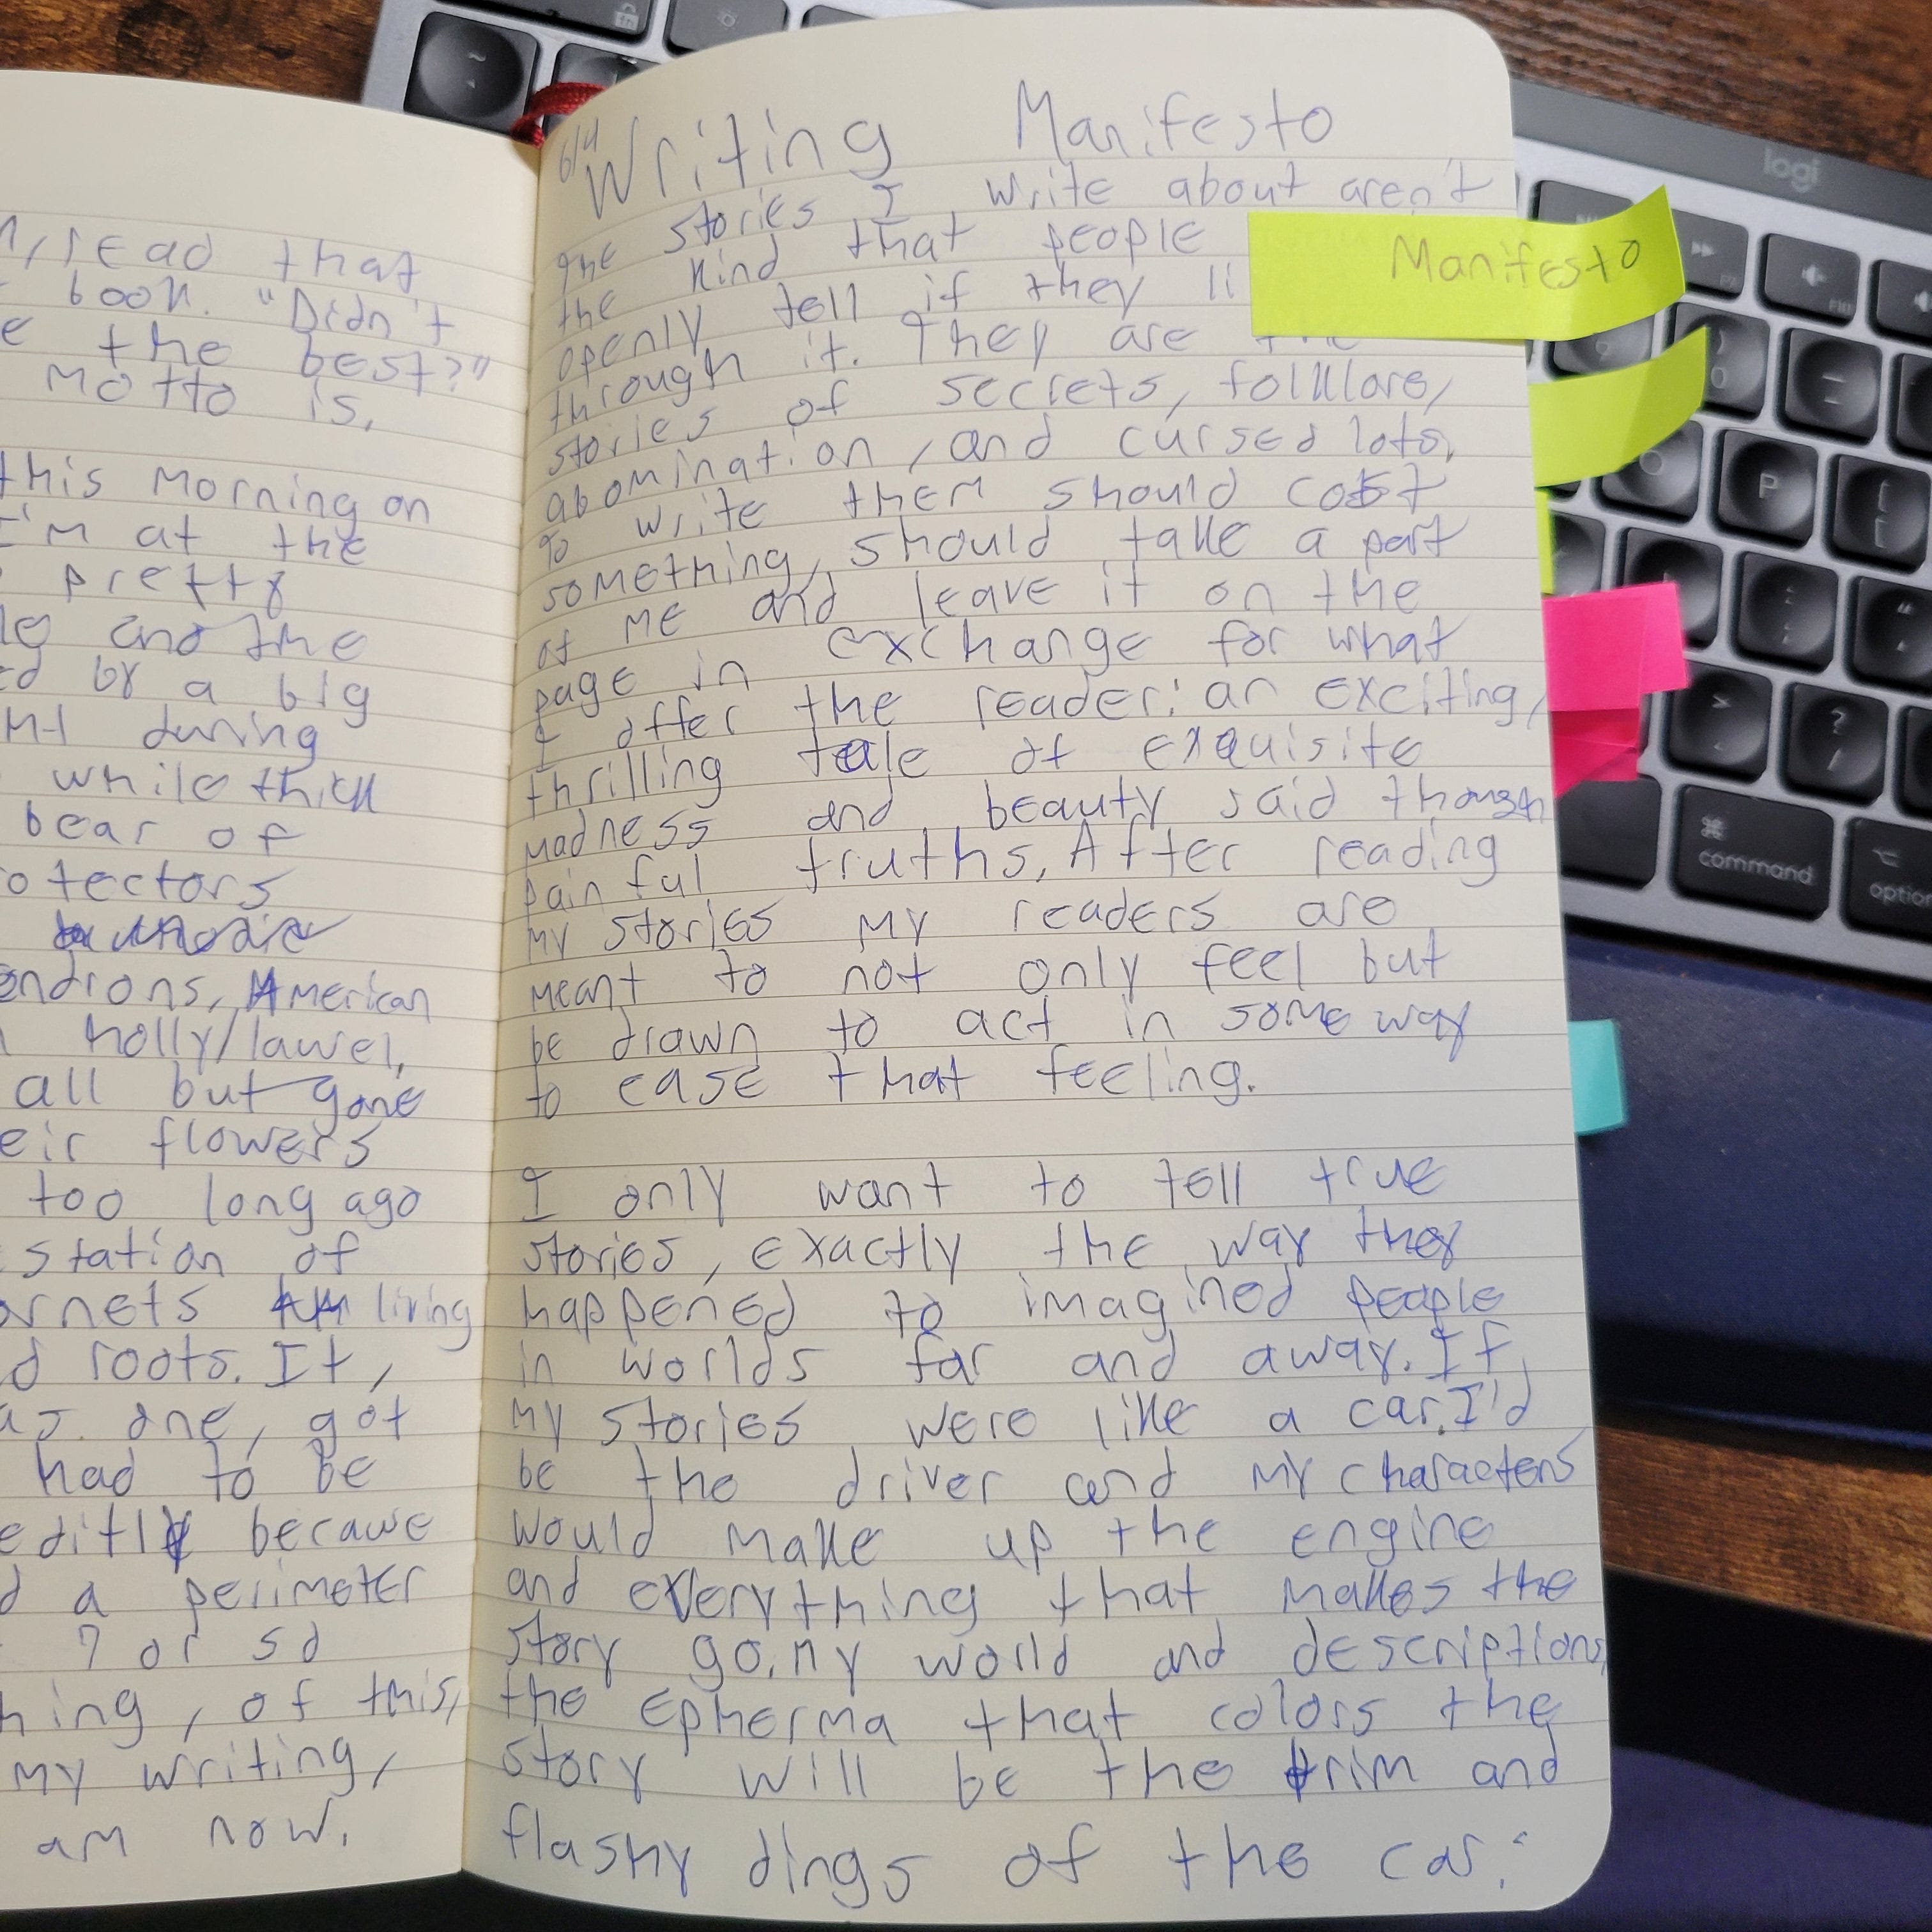 read that
book. "Didn't
the best?"
Motto is,
this morning on
I'm at the
pretty
and the
by a big
during
while thick
bear of
American
holly/laurel,
all but gone
flowers
too long ago
station of
living
roots. It,
one, got
had to be
because
a perimeter
? or so
of this,
my writing,
am now.
6/4
Writing Manifesto
The stories I write about aren't
the kind that people
openly tell if they
through it. They are
stories of secrets, folklore,
abomination, and cursed lots,
To write them should cost
something, should take a part
of me and leave it on the
page in exchange for what
I offer the reader: an exciting,
thrilling tale of exquisite
madness and beauty said though
painful truths. After reading
my stories my readers are
meant to not only feel but
be drawn to act in some way
to ease that feeling.
I only want to tell true
stories, exactly the way they
happened to imagined people
in worlds far and away. If
my stories were like a car, I'd
be the driver and my characters
would make up the engine
and everything that makes the
story go. My world and descriptions,
the epherma that colors the
story will be the trim and
flashy dings of the car.
Manifesto
logi
P
command
option